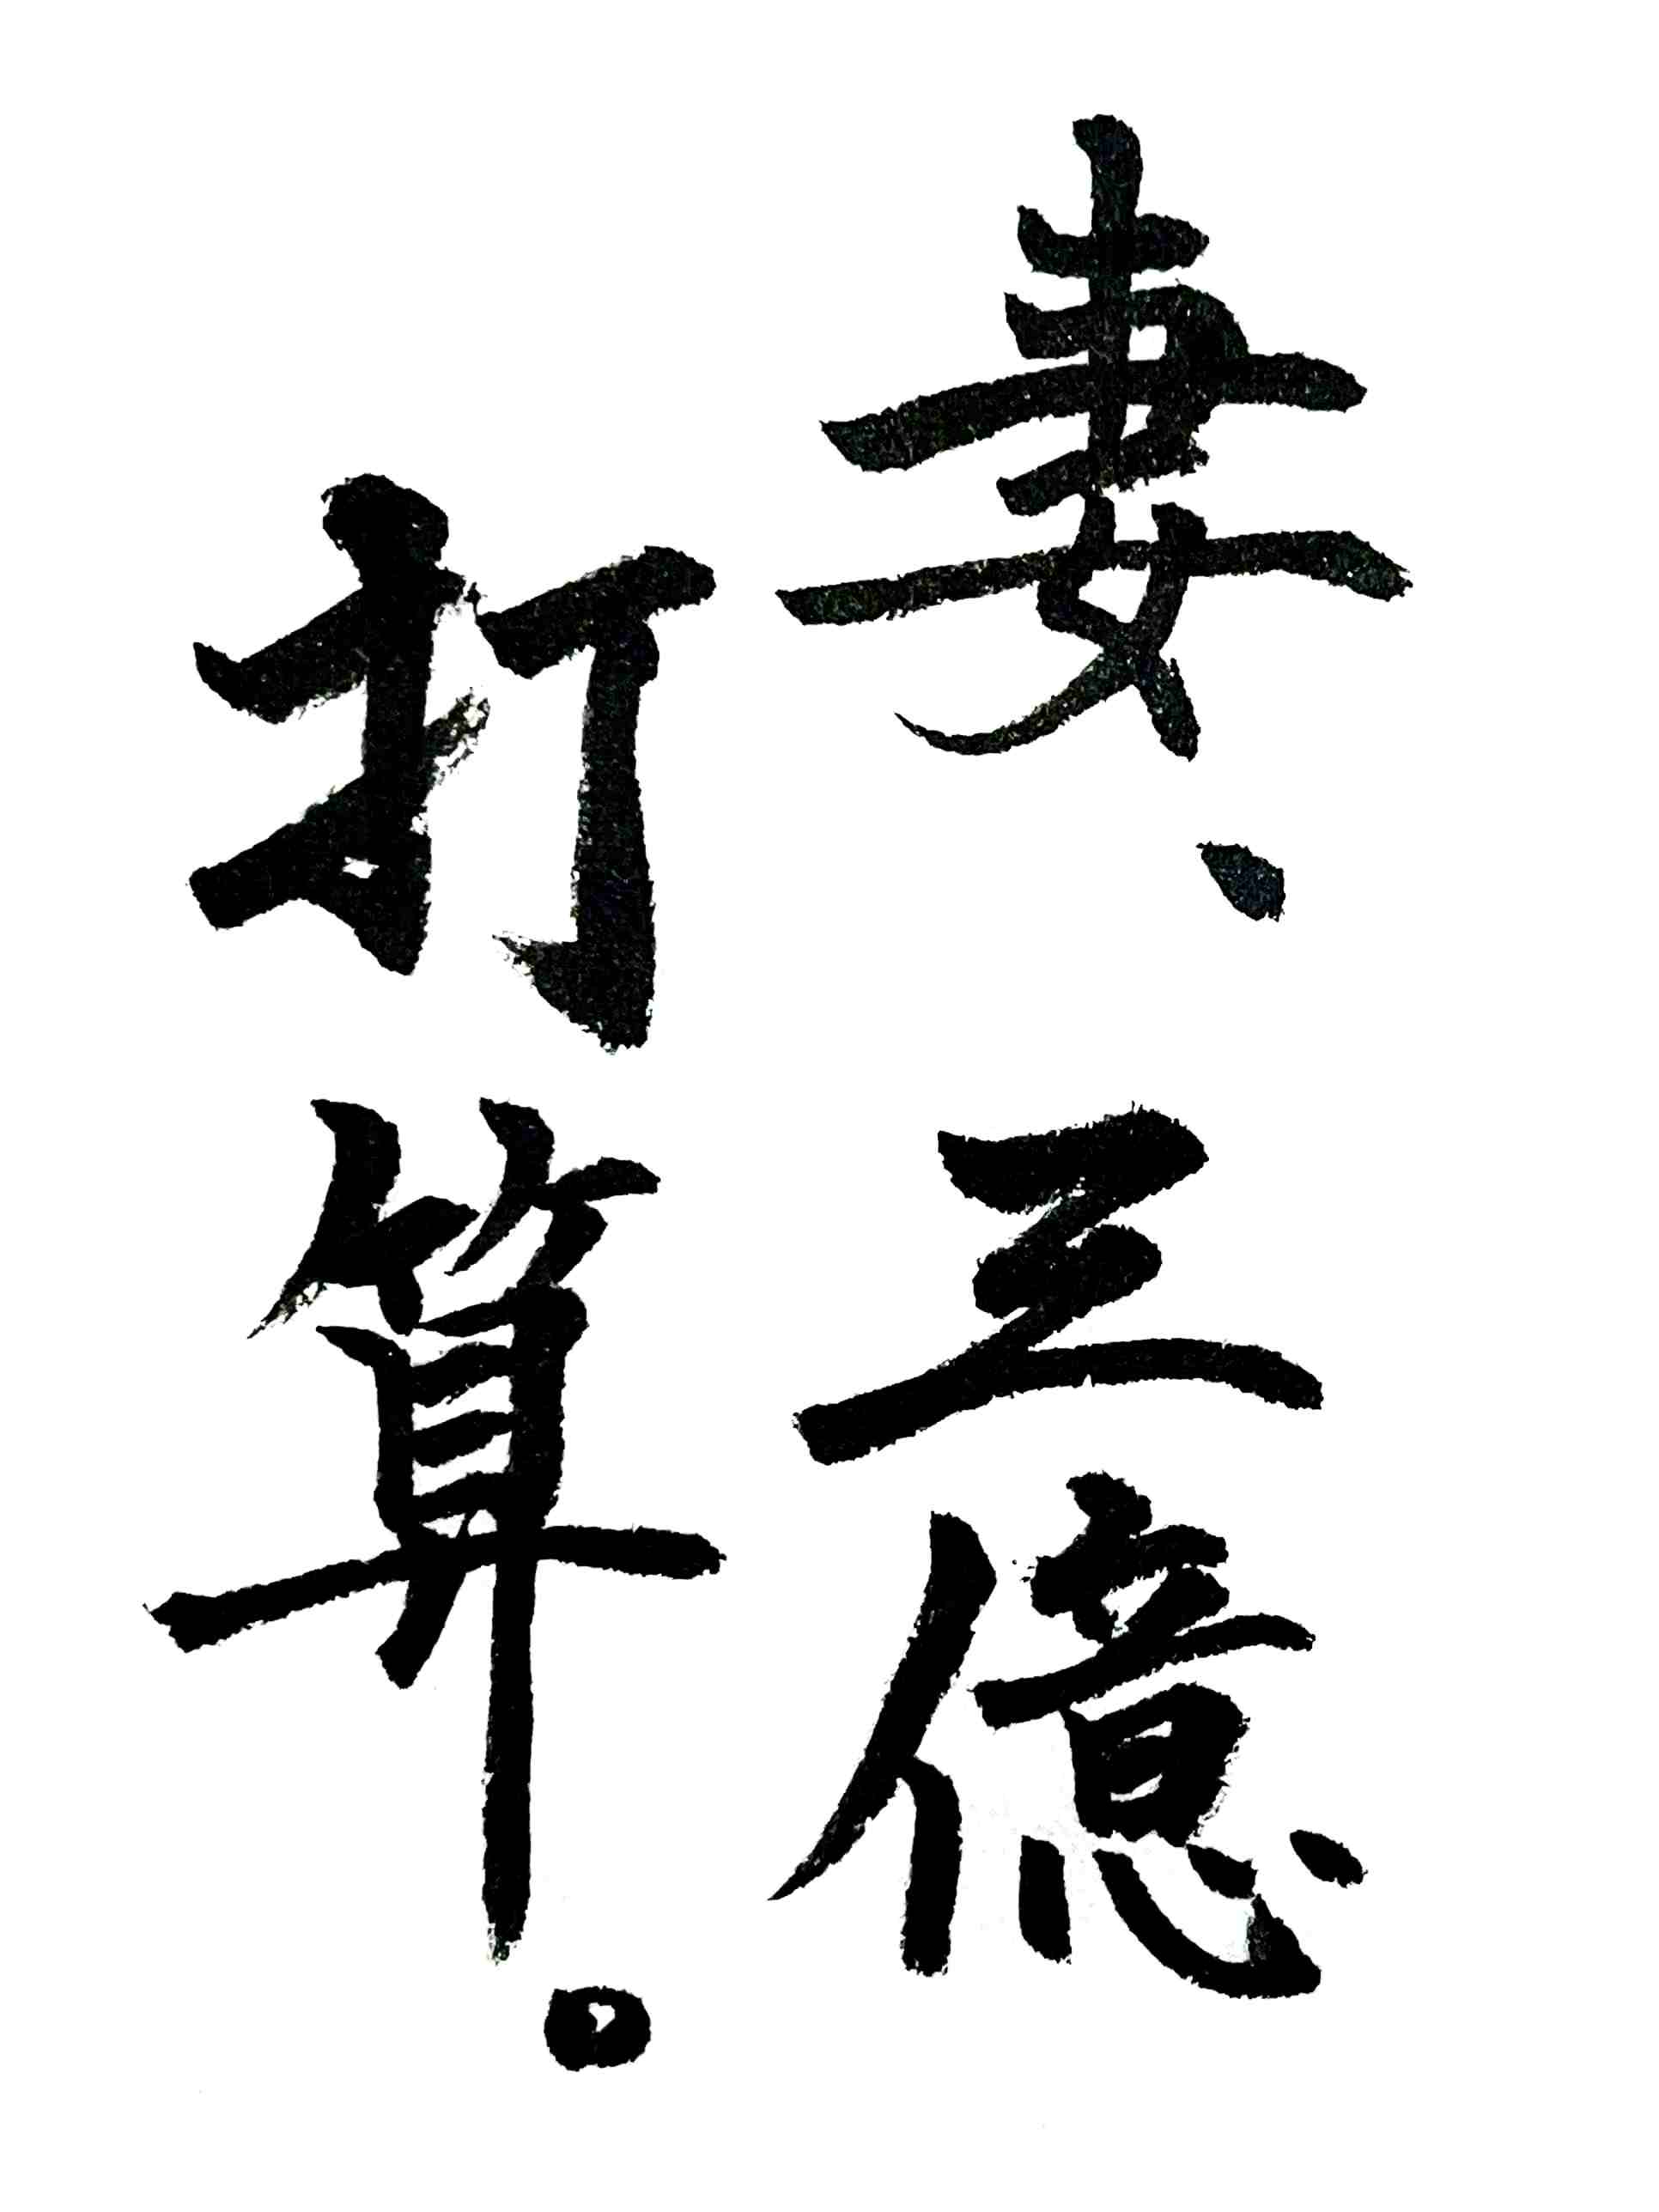 妻、三億、
打算。